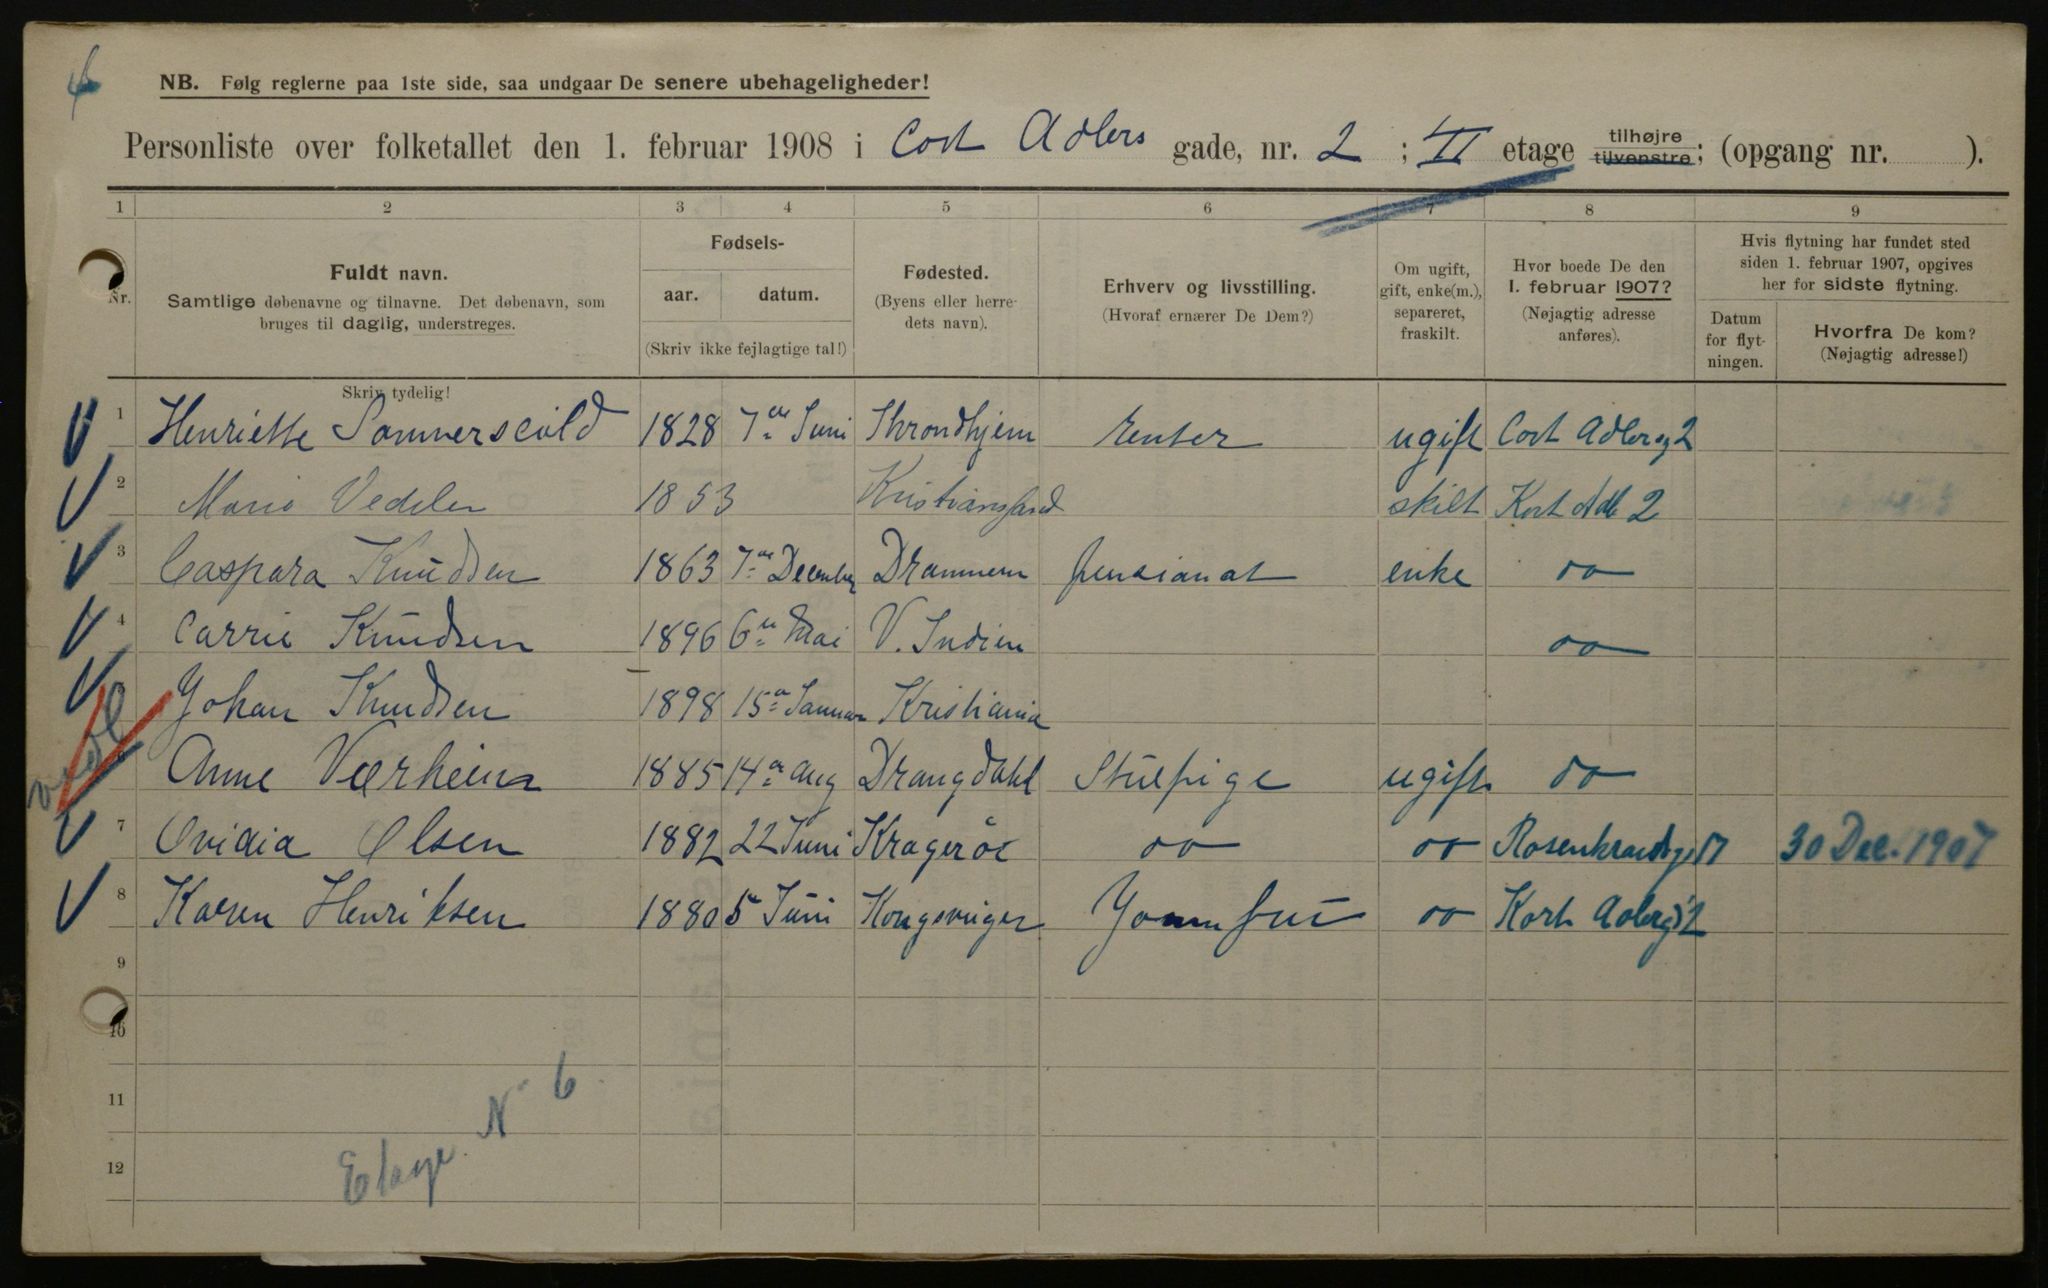 NB. Følg reglerne paa 1ste side, saa undgaar De senere ubehageligheder!
Personliste over folketallet den 1. februar 1908 i Cort Adlers gade, nr. 2 ; II etage tilhøjre tilvenstre; (opgang nr. ).
1 2 3 4 5 6 7 8 9
Nr.
Fuldt navn.
Samtlige døbenavne og tilnavne. Det døbenavn, som
bruges til daglig, understreges.
Skriv tydelig!
Fødsels-
aar. datum.
(Skriv ikke fejlagtige tal!)
Fødested.
(Byens eller herre-
dets navn).
Erhverv og livsstilling.
(Hvoraf ernærer De Dem?)
Om ugift,
gift, enke(m.),
separeret,
fraskilt.
Hvor boede De den
1. februar 1907?
(Nøjagtig adresse
anføres).
Hvis flytning har fundet sted
siden 1. februar 1907, opgives
her for sidste flytning.
Datum
for flyt-
ningen.
Hvorfra De kom?
(Nøjagtig adresse!)
1 Henriette Sommerscild 1828 7de Juni Throndhjem renter ugift Cort Adlersg 2
2 Marie Vedeler 1853 Kristianssand skilt Kort Adl 2
3 Caspara Knudsen 1863 7de December Drammen pensionat enke do
4 Carrie Knudsen 1896 6te Mai V. Indien do
Johan Knudsen 1898 15de Januar Kristiania
Anne Værheim 1885 14de Aug Drangdahl Stuepige ugift do
7 Ovidia Olsen 1882 22 Juni Kragerøe do do 30 Dec. 1907
8 Karen Henriksen 1880 5 Juni Kongsvinger Jomfru do Kort Adlersg 2
9
10
11
12
Etage N 6